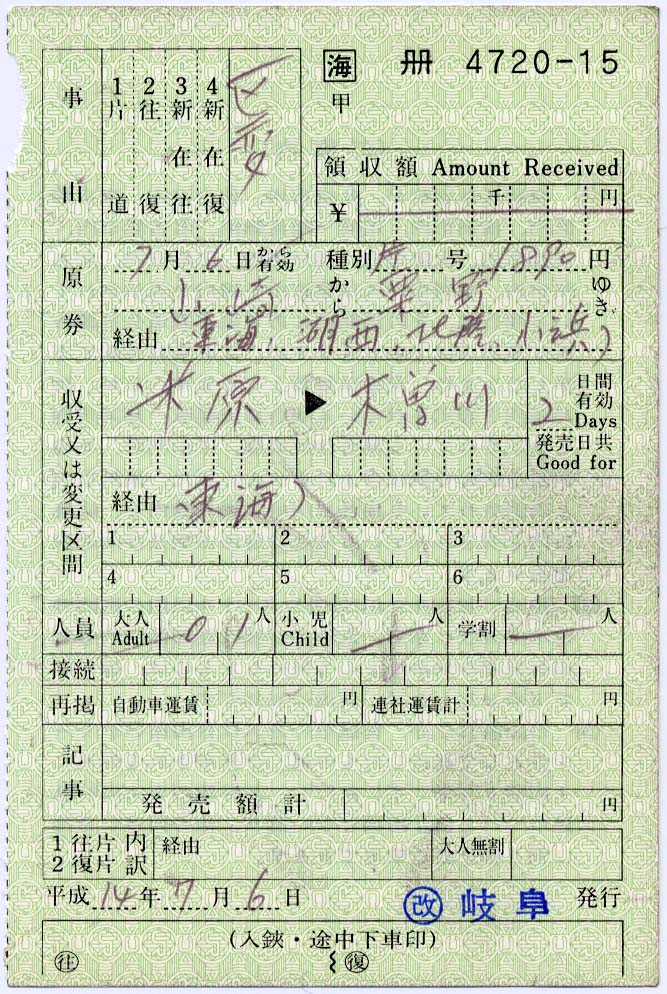 海 冊 4720-15
甲
事由
1片道
2往復
3新在往
4新在復
区変
領収額 Amount Received
¥ 千 円
原券
7月6日から有効 種別 片 号 1890円
山崎 から 粟野 ゆき
経由 東海、湖西、北陸、小浜)
収受又は変更区間
米原 ▶ 木曽川
2 日間有効 Days
発売日共 Good for
経由 東海)
1 2 3
4 5 6
人員 大人 Adult 01人 小児 Child 人 学割 人
接続
再掲 自動車運賃 円 連社運賃計 円
記事
発売額計 円
1往片 2復片 内訳 経由 大人無割
平成14年7月6日 改 岐阜 発行
(入鋏・途中下車印)
往 復